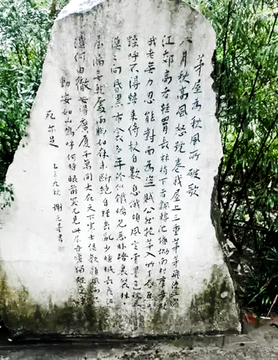 茅屋為秋風所破歌
八月秋高風怒號卷我屋上三重茅茅飛渡江灑
江郊高者挂罥長林梢下者飄轉沉塘坳南村群童欺
我老無力忍能對面為盜賊公然抱茅入竹去唇焦口
燥呼不得歸來倚杖自歎息俄頃風定雲墨色秋天
漠漠向昏黑布衾多年冷似鐵嬌兒惡臥踏裏裂床
屋漏無乾處雨腳如麻未斷絕自經喪亂少睡眠長夜沾
濕何由徹安得廣廈千萬間大庇天下寒士俱歡顏風雨不
動安如山嗚呼何時眼前突兀見此屋吾廬獨破受凍
死亦足